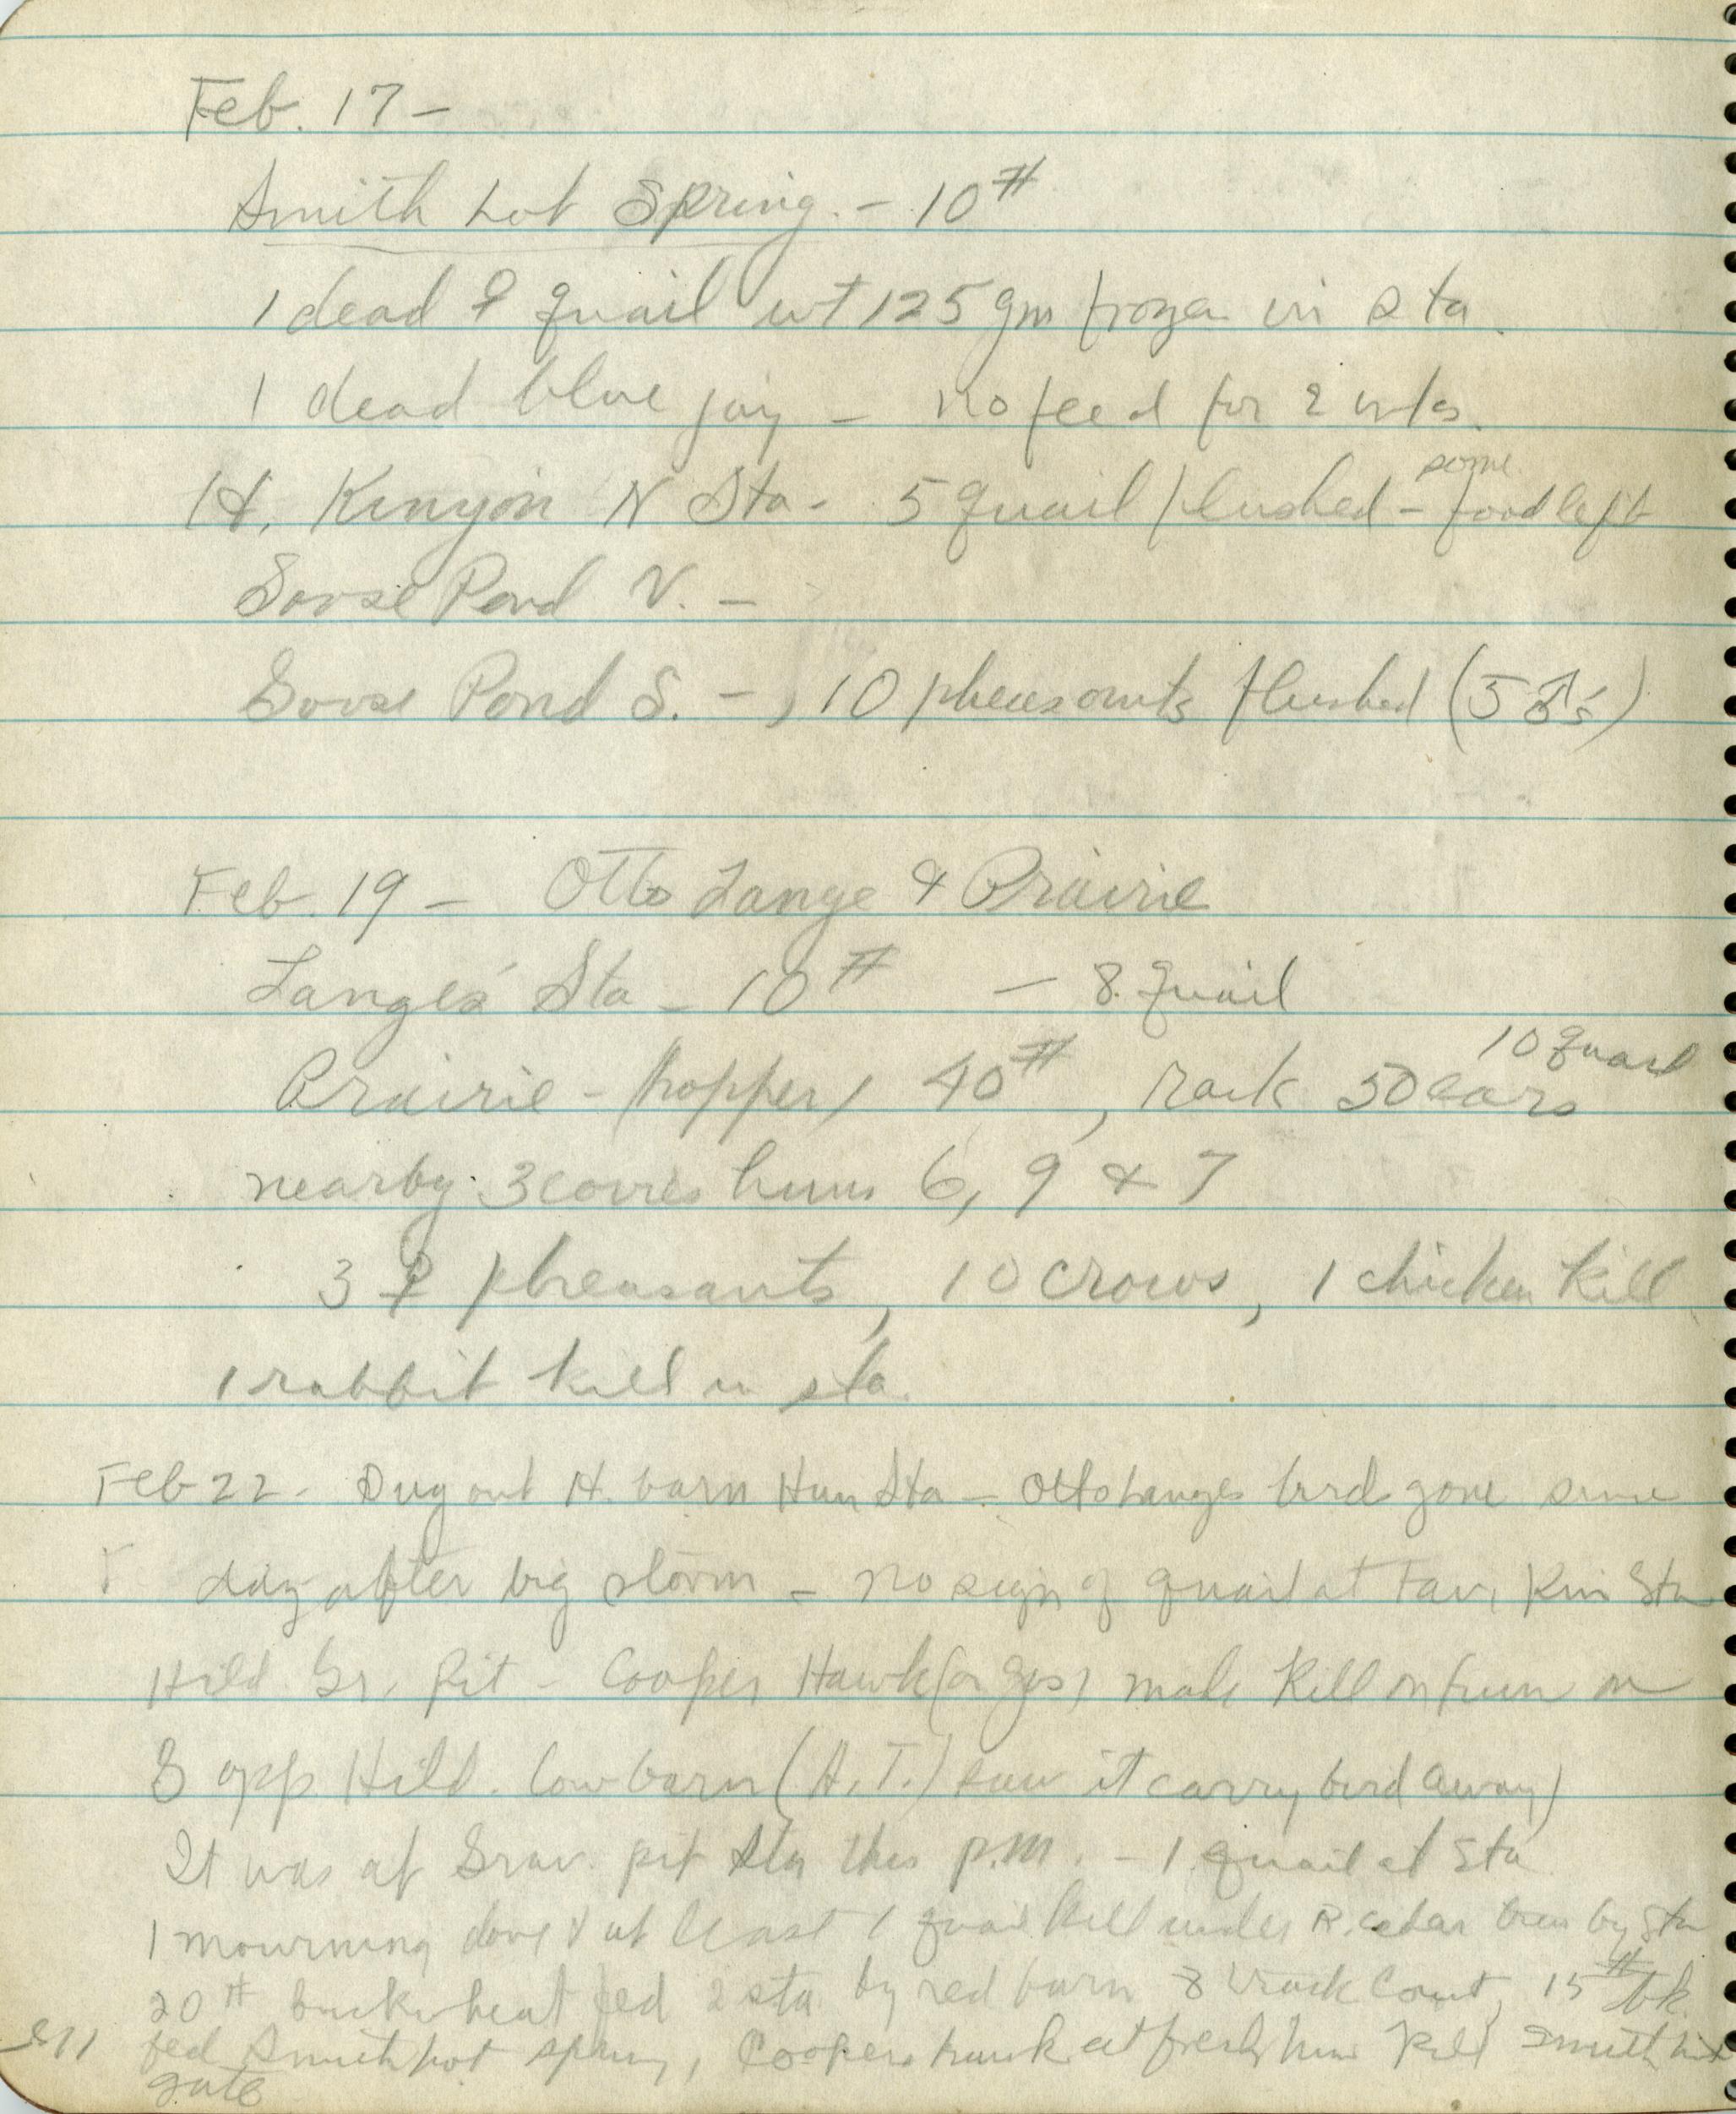 Feb. 17 -
Smith hot Spring. - 10 #
1 dead ♀ quail wt 125 gm frozen in sta.
1 dead blue jay - no feed for 2 wks.
H. Kenyon N Sta - 5 quail flushed - some food left
Goose Pond N. -
Goose Pond S. - , 10 pheasants flushed (5 ♂'s)
Feb. 19 - Otto Lange & Prairie
Lange's Sta - 10 # - 8 quail
10 quail
Prairie - hopper 40 #, rack 50 ears
nearby 3 covies huns 6, 9 & 7
3 ♀ pheasants, 10 crows, 1 chicken kill
1 rabbit kill in sta.
Feb 22 - Dug out H. barn Hun Sta - Otto Langes bird gone since
day after big storm - no sign of quail at Sta
Hild. Gr. Pit - Cooper Hawk made kill on hun on
8 opp. Hild. Cow barn (A. T.) saw it carry bird away)
It was at Grav. pit Sta this p.m. - 1 quail at Sta
1 mourning dove & at least 1 quail kill under R. cedar tree by Sta
20 # buckwheat fed 2 sta by red barn 8 track count, 15 # bk.
fed Smith hot spring, Coopers hawk at fresh hun kill Smith
gate